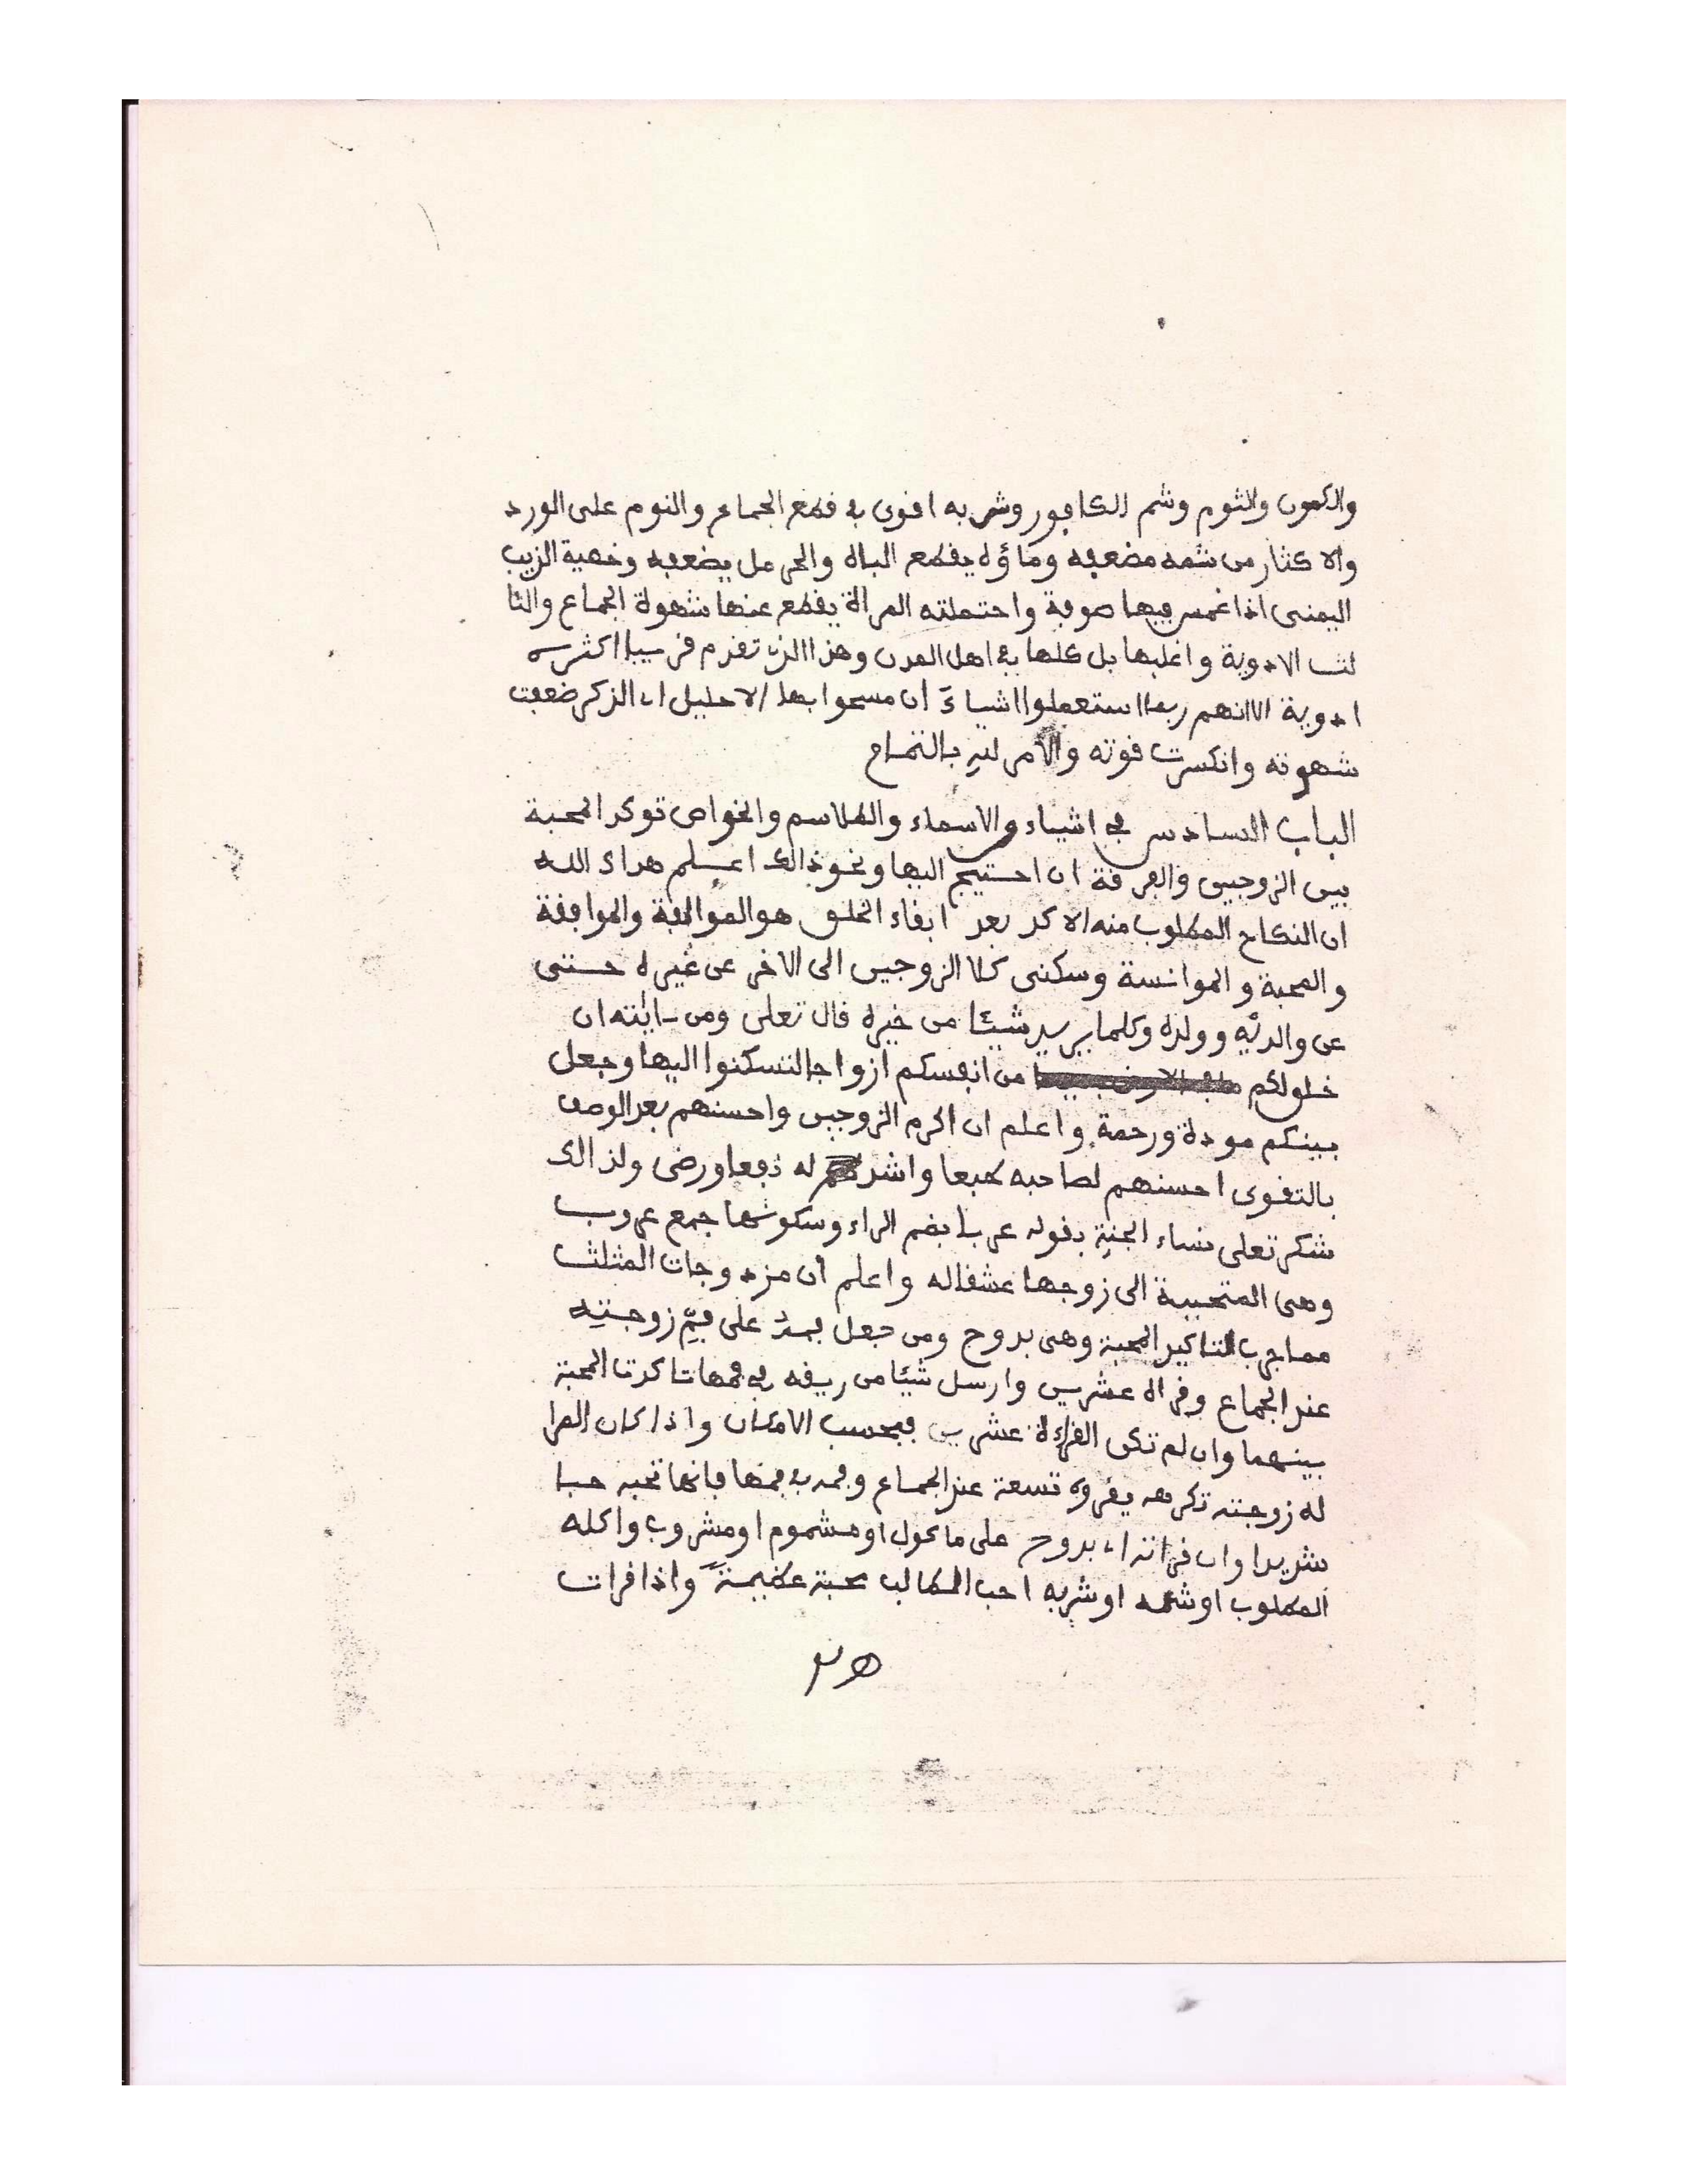 والكمون والثوم وشم الكافور وشربه افوى في فطع الجماع والنوم على الورد
والاكثار من شمه مضعفه وماؤه يفطع الباه والحرمل يضعفه وخصية الذيب
اليمنى اذا غمس فيها صوفة واحتملته المراة يفطع عنها شهوة الجماع والثا
لث الادوية واغلبها بل كلها في اهل المدن وهذا الذي تفدم فريبا اكثر
ادوية الا انهم ربما استعملوا اشياء ان مسحوا بها الاحليل اي الذكر ضعفت
شهوته وانكسرت فوته والامر لله
الباب السادس في اشياء والاسماء والطلاسم والخواص توكد المحبة
بين الزوجين والفرفة ان احتيج اليها ونحو ذالك اعلم هداك الله
ان النكاح المطلوب منه الاكد بعد ابفاء الخلق هو الموالفة والموافقة
والمحبة والموانسة وسكنى كلا الزوجين الى الاخر عن غيره حتى
عن والديه وولده وكلما يريد شيئا من خيره فال تعلى ومن ءايته ان
خلق لكم من انفسكم ازواجا لتسكنوا اليها وجعل
بينكم مودة ورحمة واعلم ان اكرم الزوجين واحسنهم بعد الوصف
بالتفوى احسنهم لصاحبه طبعا واشدهم له نفعا ورضى ولذالك
شكر تعلى نساء الجنة بفوله عربا بضم الراء وسكونها جمع عروب
وهي المتحببة الى زوجها عشفا له واعلم ان مزدوجات المثلث
مما جرب لتاكيد المحبة وهي بدوح ومن جعل فمه على فم زوجته
عند الجماع وفراه عشرين وارسل شيئا من ريفه في فمها تاكدت المحبة
بينهما وان لم تكن الفراءة عشرين فبحسب الامكان واذا كان المرا
له زوجته تكرهه يفروه تسعة عند الجماع وفمه في فمها فانها تحبه حبا
شديدا وان فراته اي بدوح على ماكول او مشموم او مشروب واكله
المطلوب او شمه او شربه احب الطالب محبة عظيمة واذا فرات